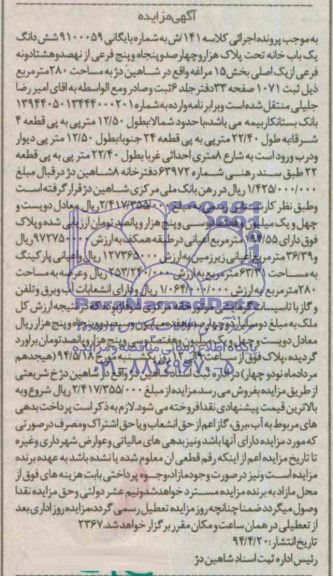 آگهی مزایده
به موجب پرونده اجرائی کلاسه ۱۴۱/ش به شماره بایگانی ۹۱۰۰۰۵۹ شش دانگ
یک باب خانه تحت پلاک هزار و چهارصد و پنجاه و پنج فرعی از نهصد و هشتاد و نه
فرعی از یک اصلی بخش ۱۵ مراغه واقع در شاهین دژ به مساحت ۲۸۰ متر مربع
ذیل ثبت ۱۰۷۱ صفحه ۳۳ دفتر جلد ۶ ثبت و صادر ومع الواسطه به اقای امیر رضا
جلیلی منتقل شده است وبرابر نامه وارده به شماره ۱۳۹۴۴۰۵۰۱۳۴۴۴۰۰۰۲۰۱
بانک بستانکار بیمه می باشد، با حدود شمالا: بطول ۱۲/۵۰ متر پی به پی قطعه ۴
شرقا به طول ۲۲/۴۰ متر پی به پی قطعه ۲۴ جنوبا بطول ۱۲/۵۰ متر پی دیوار
ودرب ورود است به شارع ۸ متری احداثی غربا بطول ۲۲/۴۰ متر پی به پی قطعه
۲۲ طبق سند رهنی شماره ۶۳۹۷۲ دفترخانه ۸ شاهین دژ در قبال مبلغ
۱/۴۲۵/۰۰۰/۰۰۰ ریال در رهن بانک ملی مرکزی شاهین دژ قرار گرفته است
وطبق نظر کارشناس ۲/۴۱۷/۳۵۵/۰۰۰ ریال معادل دویست و
چهل و یک میلیون و هفتصد و سی و پنج هزار و پانصد تومان ارزیابی شده و پلاک
فوق دارای ۱۹۴/۵۵ متر مربع اعیانی در طبقه همکف به ارزش ۹۷۲۷۵۰
و ۳۶/۳۹ متر مربع اعیانی زیرزمین به ارزش ۱۲۷۳۶۵۰۰۰ ریال واعیانی پارکینگ
به مساحت ۶۳/۳۱ متر مربع به ارزش ۲۵۳/۲۴۰/۰۰۰ ریال وعرصه به مساحت
۲۸۰ متر مربع به ارزش ۱/۰۶۴/۰۰۰/۰۰۰ ریال و دارای انشعابات آب وبرق و تلفن
و گاز با تاسیسات گرمایشی موتورخانه مرکزی شوفاژ بوده که در نتیجه ارزش کل
ملک به مبلغ دو میلیارد و چهارصد و هفده میلیون و سیصد و پنجاه و پنج هزار ریال
معادل دویست و چهل و یک میلیون وهفتصد و سی و پنج هزار و پانصد تومان براورد
گردیده، پلاک فوق از ساعت ۹ الی ۱۲ روز یکشنبه مورخ ۹۴/۵/۱۸ (هیجدهم
مرداد ماه نود و چهار) در اداره ثبت اسناد شاهین دژ واقع در شاهین دژ خ شریعتی
از طریق مزایده بفروش می رسد مزایده از مبلغ ۲/۴۱۷/۳۵۵/۰۰۰ ریال شروع و به
بالاترین قیمت پیشنهادی نقدا فروخته می شود. لازم به ذکر است پرداخت بدهی
های مربوط به آب، برق، گاز اعم از حق انشعاب ویا حق اشتراک ومصرف در صورتی
که مورد مزایده دارای آنها باشد ونیز بدهی های مالیاتی و عوارض شهرداری وغیره
تا تاریخ مزایده اعم از اینکه رقم قطعی ان معلوم شده یا نشده باشد به عهده برنده
مزایده است ونیز در صورت وجود مازاد، وجوه پرداختی بابت هزینه های فوق از
محل مازاد به برنده مزایده مسترد خواهد شد ونیم عشر دولتی وحق مزایده نقدا
وصول میگردد ضمنا چنانچه روز مزایده تعطیل رسمی گردد، مزایده روز اداری بعد
از تعطیلی در همان ساعت و مکان مقرر برگزار خواهد شد. ۲۳۶۷
تاریخ انتشار: ۹۴/۴/۲۰
رئیس اداره ثبت اسناد شاهین دژ